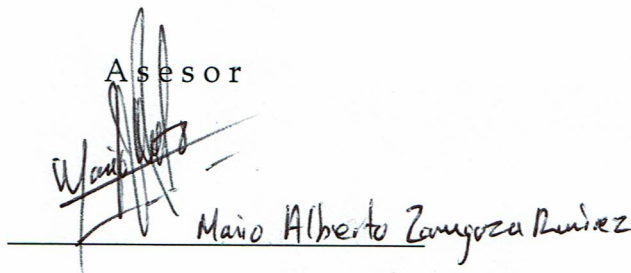 Asesor
Mario Alberto Zaragoza Ramirez